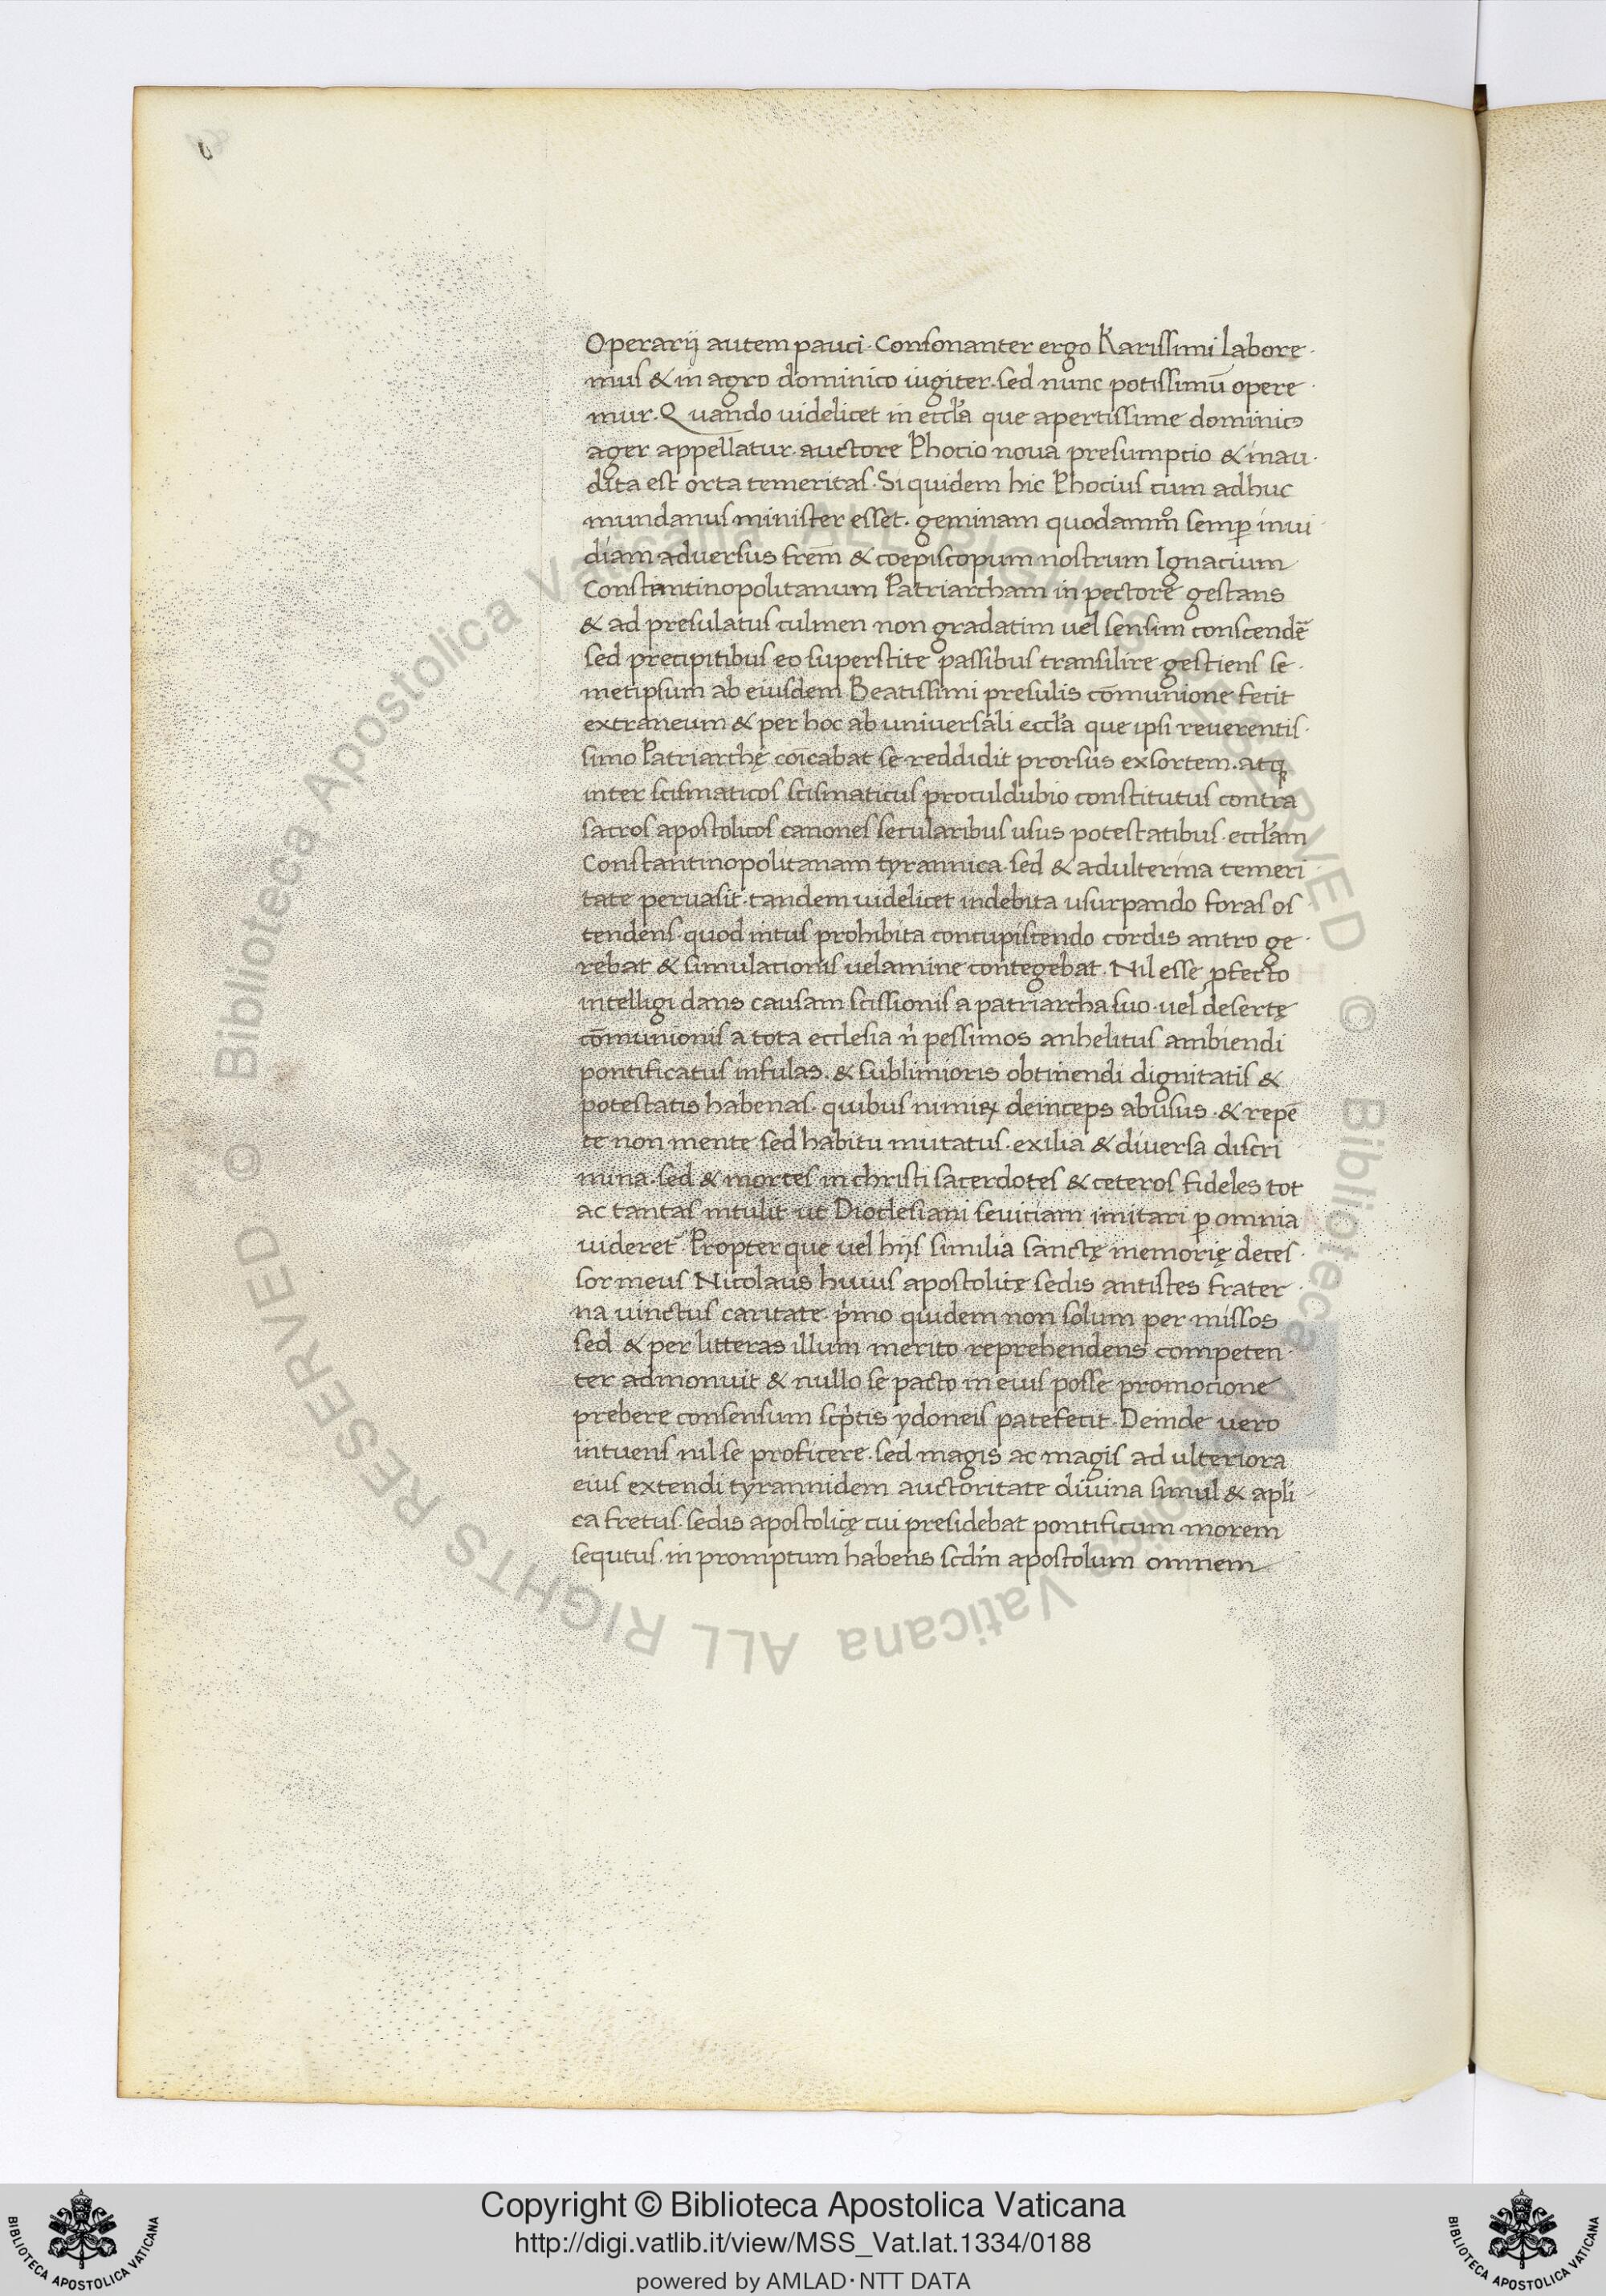 Operarij autem pauci. Consonanter ergo Karissimi labore
mus & in agro dominico iugiter. sed nunc potissimū opere
mur. Quando uidelicet in eccl̄a que apertissime dominico
ager appellatur. auctore Phocio noua presumptio & inau
dita est orta temeritas. Si quidem hic Phocius cum adhuc
mundanus minister esset. geminam quodammo semp̱ inui
diam aduersus frēm & coepiscopum nostrum Ignacium
Constantinopolitanum Patriarcham in pectore gestans
& ad presulatus culmen non gradatim uel sensim conscendē
sed precipitibus eo superstite passibus transilire gestiens se
metipsum ab eiusdem Beatissimi presulis cōmunione fecit
extraneum & per hoc ab uniuersali eccl̄a que ipsi reuerentis
simo Patriarchę cōicabat se reddidit prorsus exsortem. atq
inter scismaticos scismaticus proculdubio constitutus contra
sacros apostolicos canones secularibus usus potestatibus. eccl̄am
Constantinopolitanam tyrannica. sed & adulterina temeri
tate peruasit. tandem uidelicet indebita usurpando foras os
tendens. quod intus prohibita concupiscendo cordis antro ge
rebat & simulationis uelamine contegebat. Nil esse ꝓfecto
intelligi dans causam scissionis a patriarcha suo. uel desertę
cōmunionis a tota ecclesia n̍ pessimos anhelitus ambiendi
pontificatus infulas. & sublimioris obtinendi dignitatis &
potestatis habenas. quibus nimiꝝ deinceps abusus. & repē
te non mente sed habitu mutatus. exilia & diuersa discri
mina. sed & mortes in christi sacerdotes & ceteros fideles tot
ac tantas intulit ut Dioclesiani seuiciam imitari p̱ omnia
uideret̄. Propter que uel hijs similia sanctę memorię deces
sor meus Nicolaus huius apostolicę sedis antistes frater
na uinctus caritate. p̍mo quidem non solum per missos
sed & per litteras illum merito reprehendens competen
ter admonuit & nullo se pacto in eius posse promocione
prebere consensum scp̍tis ydoneis patefecit. Deinde uero
intuens nil se proficere. sed magis ac magis ad ulteriora
eius extendi tyrannidem auctoritate diuina simul & apli
ca fretus. sedis apostolicę cui presidebat pontificum morem
sequtus. in promptum habens scd̄m apostolum omnem
Copyright © Biblioteca Apostolica Vaticana
http://digi.vatlib.it/view/MSS_Vat.lat.1334/0188
powered by AMLAD·NTT DATA
BIBLIOTECA APOSTOLICA VATICANA
BIBLIOTECA APOSTOLICA VATICANA
© Biblioteca Apostolica Vaticana ALL RIGHTS RESERVED
© Biblioteca Apostolica Vaticana ALL RIGHTS RESERVED